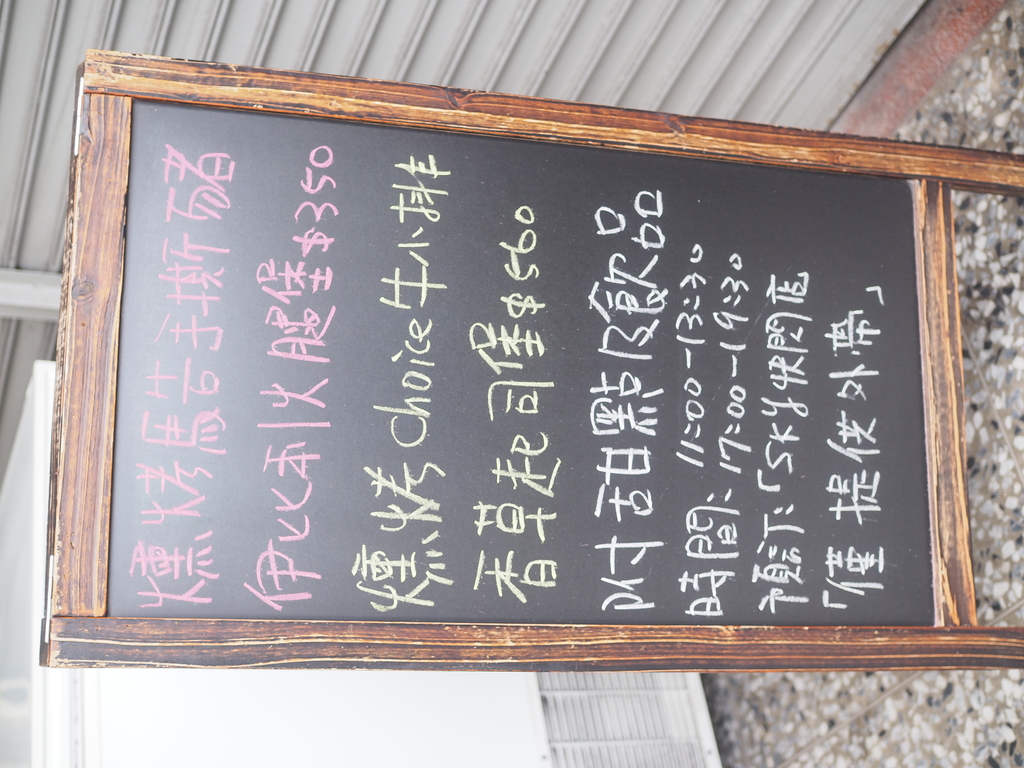 燻烤馬告手撕豬
伊比利火腿堡$350
燻烤choice牛小排
香草起司堡$560
附甜點及飲品
時間:11:00-13:30
17:00-19:30
預訂:「SKY快閃店
「僅提供外帶」